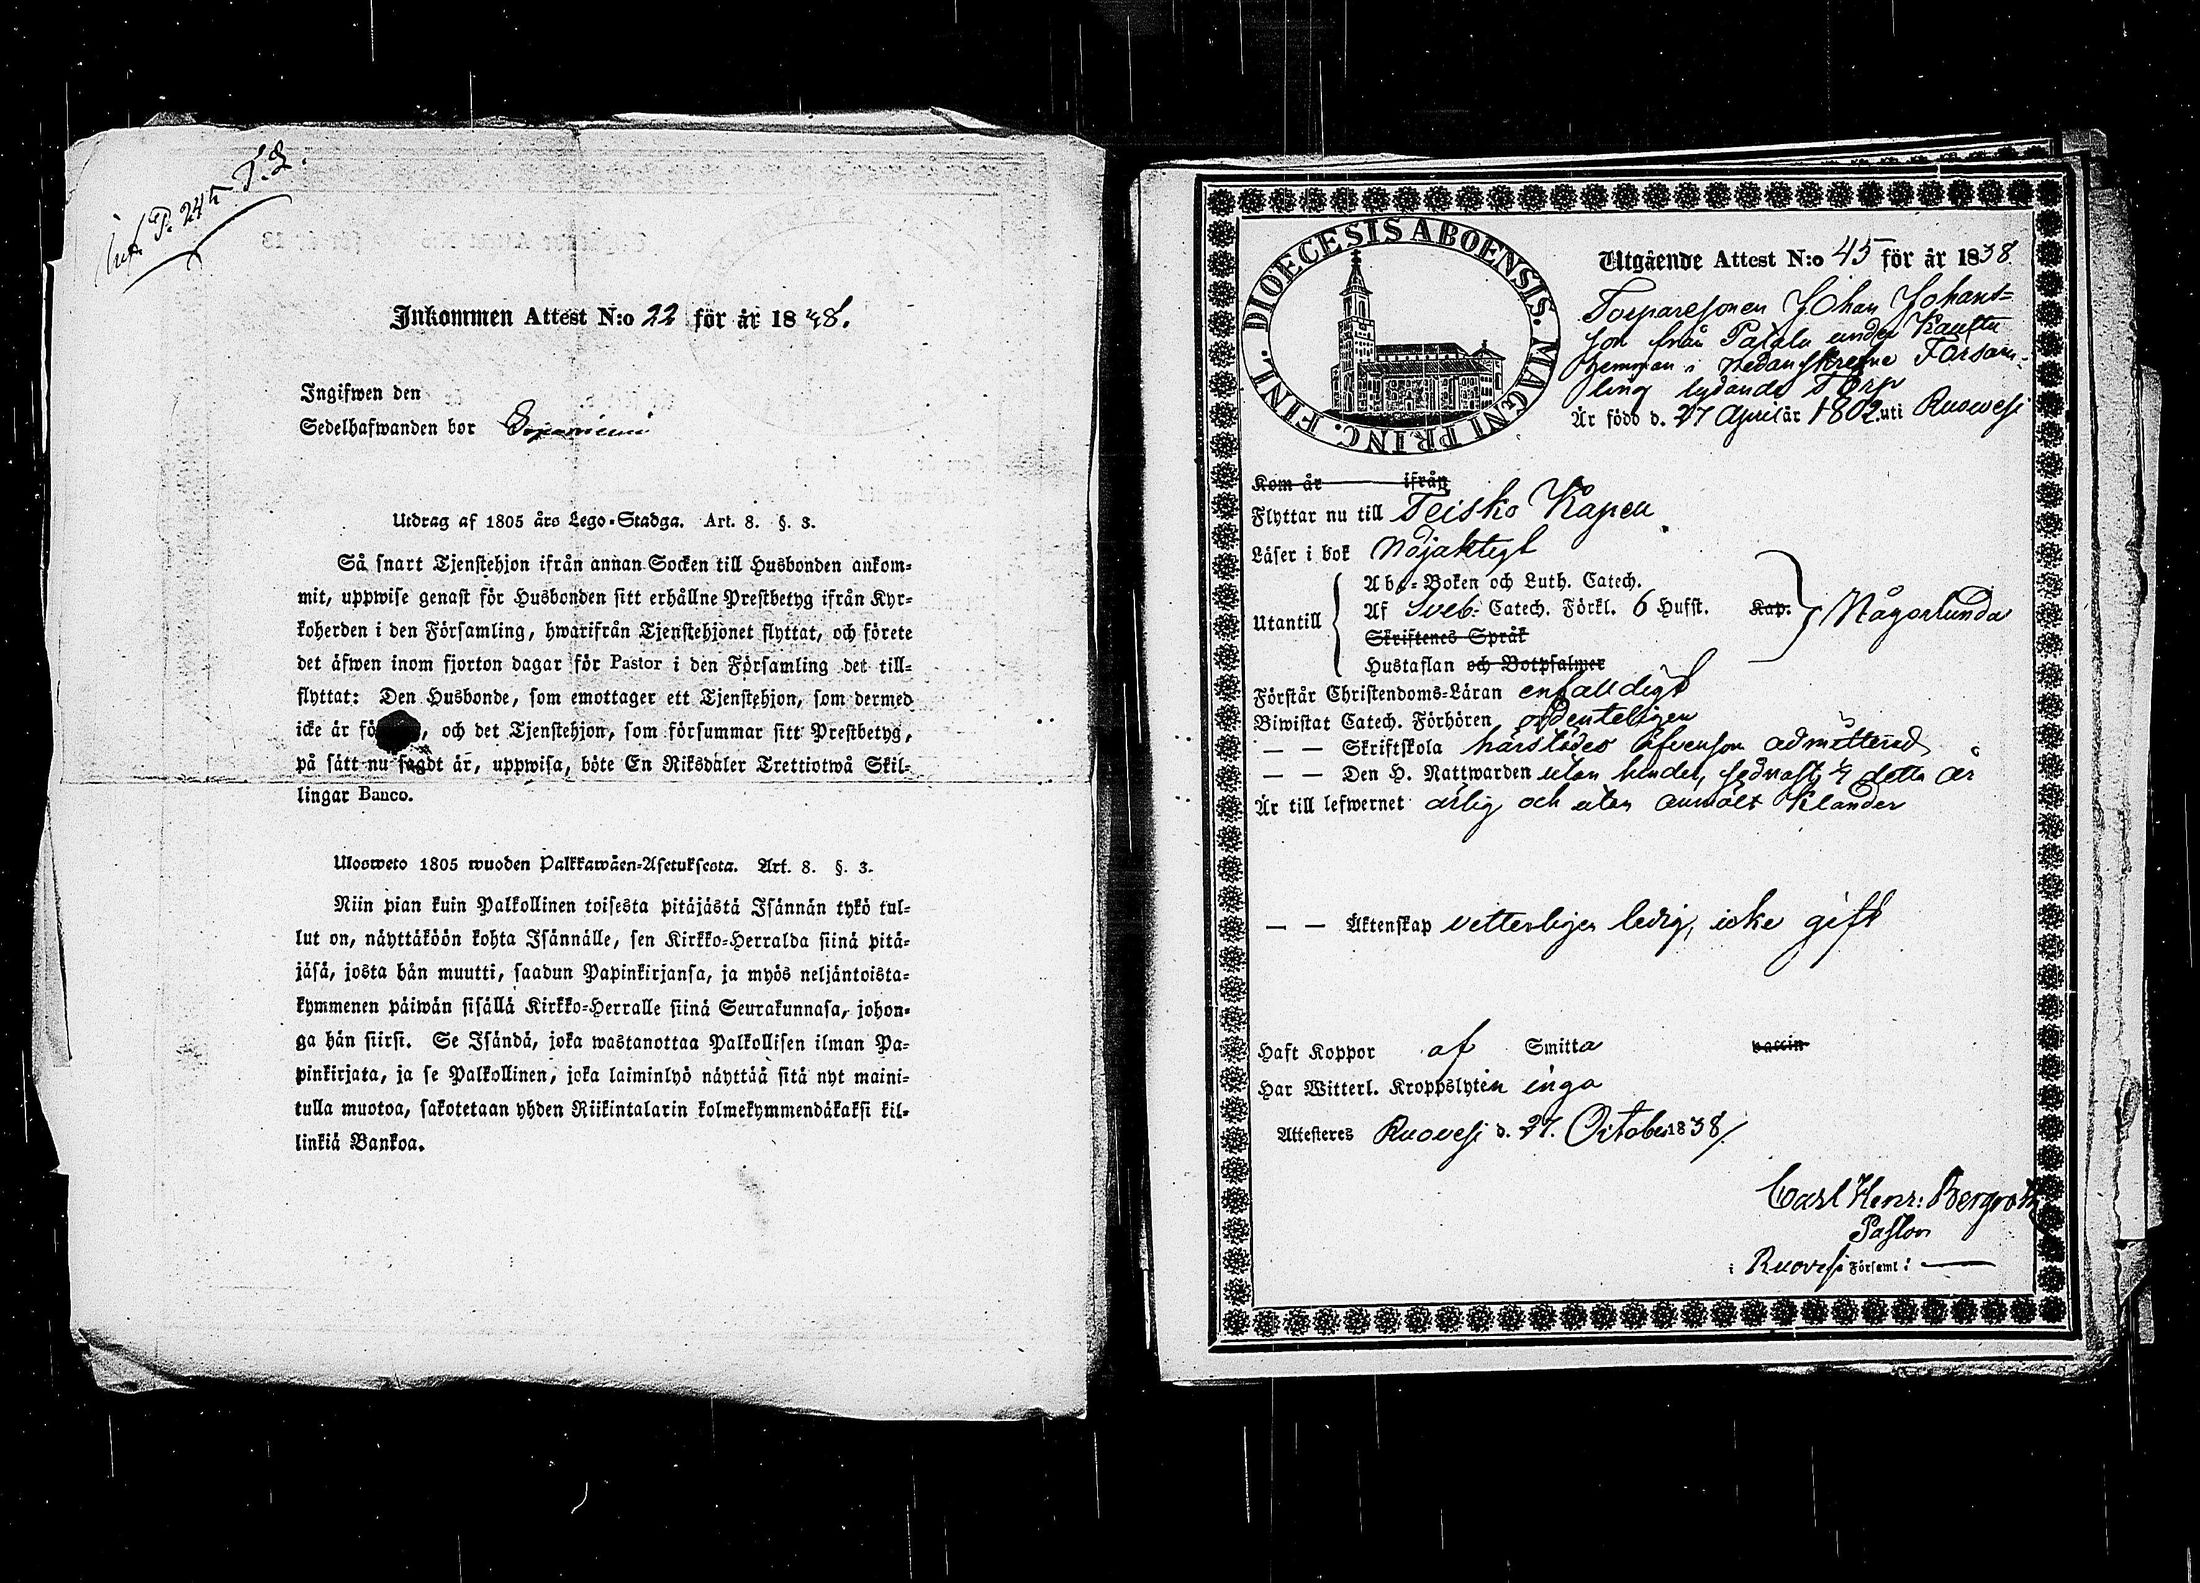 Inf. P. 24
Inkommen Attest N:o 22 för år 1838.
Ingifwen den
Sedelhafwanden bor
Utdrag af 1805 års Lego-Stadga. Art. 8. §. 3.
Så snart Tjenstehjon ifrån annan Socken till Husbonden ankom-
mit, uppwise genast för Husbonden sitt erhållne Prestbetyg ifrån Kyr-
koherden i den Församling, hwarifrån Tjenstehjonet flyttat, och förete
det äfwen inom fjorton dagar för Pastor i den Församling det till-
flyttat: Den Husbonde, som emottager ett Tjenstehjon, som dermed
icke är , och det Tjenstehjon, som försummar sitt Prestbetyg,
på sätt nu sagdt är, uppwisa, böte En Riksdaler Trettiotwå Skil-
lingar Banco.
Ulosweto 1805 wuoden Palkkawäen-Asetuksesta. Art. 8. §. 3.
Niin pian kuin Palkollinen toisesta pitäjästä Isännän tykö tul-
lut on, näyttäköön kohta Isännälle, sen Kirkko-Herralda siinä pitä-
jäsä, josta hän muutti, saadun Papinkirjansa, ja myös neljäntoista-
kymmenen päiwän sisällä Kirkko-Herralle siinä Seurakunnasa, johon-
ga hän siirsi. Se Isändä, joka wastanottaa Palkollisen ilman Pa-
pinkirjata, ja se Palkollinen, joka laiminlyö näyttää sitä nyt maini-
tulla muotoa, sakotetaan yhden Riikintalarin kolmekymmendäkaksi kil-
linkiä Bankoa.
DIOECESIS ABOENSIS. MAGNI PRINC. FINL.
Utgående Attest N:o 45 för år 1838
Torparesonen Johan Johans-
son från under Kautu
hemman i nedanskrefne Försam-
ling lydande Torp
Är född d. 27 April år 1802 uti Ruowesi
Kom år ifrån
Flyttar nu till Teisko Kapell
Läser i bok Nöjaktigt
Abc-Boken och Luth. Catech.
Utantill Af Sveb. Catech. Förkl. 6 Hufst. Kap. Någorlunda
Skriftenes Språk
Hustaflan och Botpsalmer
Förstår Christendoms-Läran enfalldigt
Biwistat Catech. Förhören ordenteligen
— — Skriftskola härstädes äfvensom admitterad
— — Den H. Nattwarden utan hinder, sednast i detta år
Är till lefwernet ärlig och utan anmält klander
— — Äktenskap vetterligen ledig, icke gift
Haft Koppor af Smitta vaccin
Har Witterl. Kroppslyten inga
Attesteres Ruovesi d. 27. October 1838
Carl Henr: Bergroth
Pastor
i Ruovesi Församl: